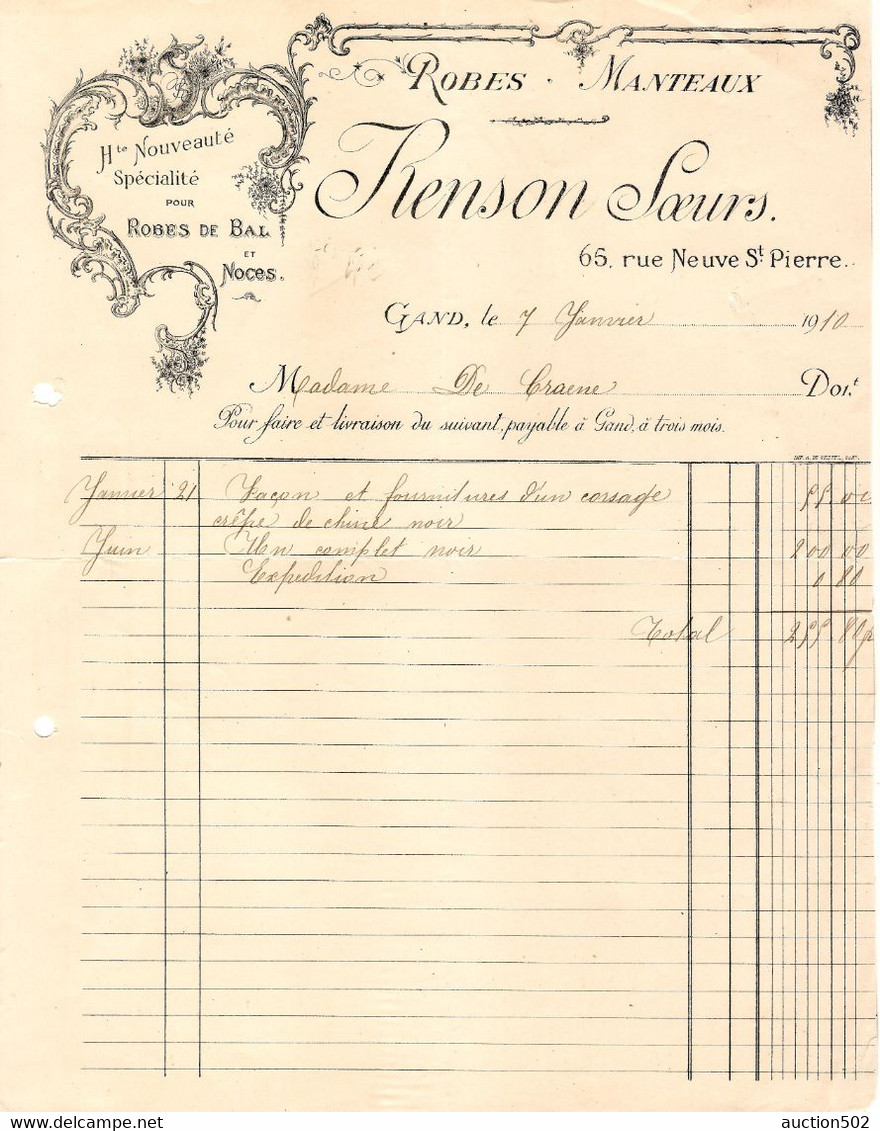 Robes · Manteaux
Hte Nouveauté
Spécialité
pour
Robes de Bal
et
Noces.
Renson Sœurs.
65, rue Neuve St Pierre.
Gand, le 7 Janvier 1910
Madame De Craene Doit
Pour faire et livraison du suivant, payable à Gand, à trois mois.
Janvier 21 Façon et fournitures d'un corsage 55.00
crêpe de chine noir
Juin Un complet noir 200 00
Expédition 0 80
Total 255 80
auction502